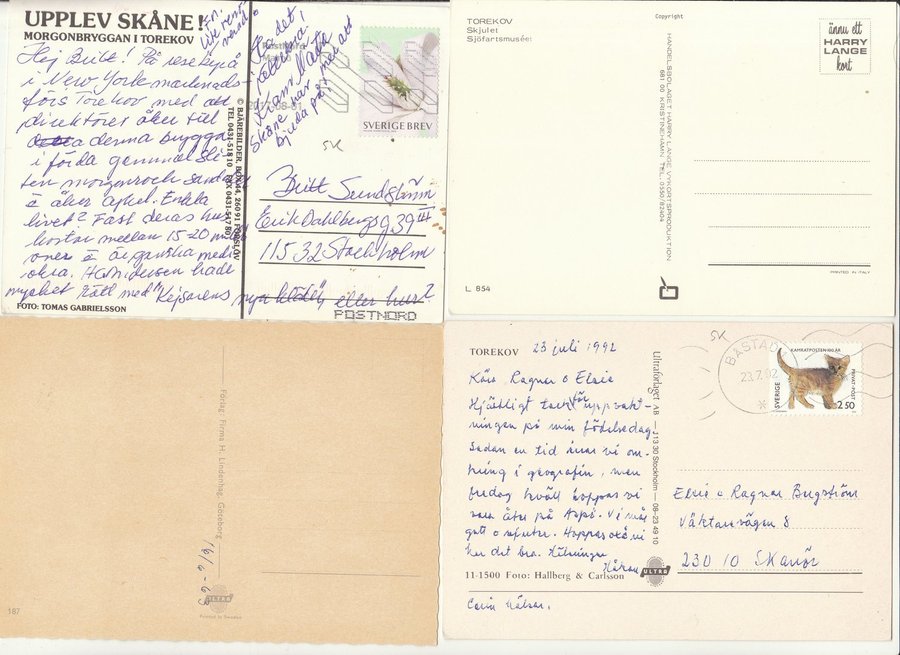 UPPLEV SKÅNE!
MORGONBRYGGAN I TOREKOV
Hej Britt! På resebyrå
i New York marknads-
förs Torekov med att
direktörer åker till
denna brygga
i förda gammal sli-
ten morgonrock
å åker cykel. Enkla
livet? Fast deras hus
kostar mellan 15-20
HC Andersen hade
mycket rätt med "Kejsarens nya kläder", eller hur?
FOTO: TOMAS GABRIELSSON
© BJÄREBILDER, BOX 44, 260 91 FÖRSLÖV
TEL 0431-518 10 FAX 0431-547 80
Ha det i
Kram Mats
Skåne har mer att
bjuda på!
SK
SVERIGE BREV
Britt Sundström
Erik Dahlbergsg 39 III
115 32 Stockholm
POSTNORD
TOREKOV
Skjulet
Sjöfartsmuséet
Copyright
ännu ett
HARRY
LANGE
kort
HANDELSBOLAGET HARRY LANGE VYKORTSPRODUKTION
681 00 KRISTINEHAMN TEL. 0550/82404
L 854
PRINTED IN ITALY
Förlag: Firma H. Lindenhag, Göteborg
16/6-63
ULTRA
Printed in Sweden
187
TOREKOV 23 juli 1992
Kära Ragnar o Elsie
Hjärtligt tack för uppvakt-
ningen på min födelsedag.
Sedan en tid irrar vi om-
kring i geografin, men
fredag kväll hoppas vi
vara åter på Aspö. Vi mår
gott o njuter. Hoppas också ni
har det bra. Hälsningar
Håkan
11-1500 Foto: Hallberg & Carlsson
Carin hälsar.
Ultraförlaget AB — 113 30 Stockholm — 08-23 49 10
ULTRA
SK
BÅSTAD
23.7.92
KAMRATPOSTEN 100 ÅR
SVERIGE
PRIVAT-POST
2 50
Elsie o Ragnar Bergström
Väktarevägen 8
230 10 Skanör